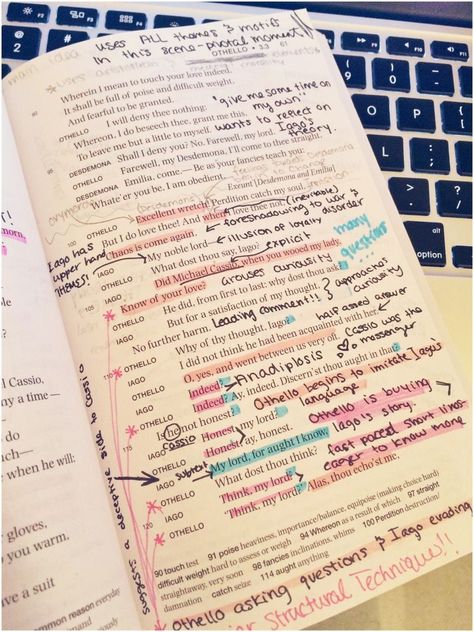 USES ALL THEMES & MOTIFS
IN THIS SCENE - pivotal moment!
OTHELLO • 3.3 61
Wherein I mean to touch your love indeed,
It shall be full of poise and difficult weight,
And fearful to be granted.
OTHELLO I will deny thee nothing:
Whereon, I do beseech thee, grant me this,
To leave me but a little to myself.
"give me some time on my own"
wants to reflect on Iago's theory.
DESDEMONA Shall I deny you? No. Farewell, my lord.
OTHELLO Farewell, my Desdemona. I'll come to thee straight.
DESDEMONA Emilia, come. — Be as your fancies teach you:
Whate'er you be, I am obedient.
Exeunt [Desdemona and Emilia]
oxymoron
OTHELLO Excellent wretch! Perdition catch my soul,
But I do love thee! And when I love thee not, (inevitable)
Chaos is come again.
foreshadowing to war & disorder
Iago has upper hand
THEMES!
IAGO My noble lord
illusion of loyalty
OTHELLO What dost thou say, Iago?
explicit
IAGO Did Michael Cassio, when you wooed my lady,
Know of your love?
arouses curiosity
many questions
OTHELLO He did, from first to last: why dost thou ask?
IAGO But for a satisfaction of my thought,
No further harm.
leading comment!!!
approaches curiosity
OTHELLO Why of thy thought, Iago?
half assed answer
IAGO I did not think he had been acquainted with her.
OTHELLO O, yes, and went between us very oft.
Cassio was the messenger
IAGO Indeed?
Anadiplosis
OTHELLO Indeed? Ay, indeed. Discern'st thou aught in that?
Is he not honest?
Othello begins to imitate Iago's language
cassio
IAGO Honest, my lord?
OTHELLO Honest? ay, honest.
Othello is buying Iago's story.
subtle!
IAGO My lord, for aught I know.
OTHELLO What dost thou think?
fast paced short lines
eager to know more
IAGO Think, my lord?
OTHELLO 'Think, my lord?' Alas, thou echo'st me,
suggests a deceptive side to cassio
90 touch test 91 poise heaviness, importance/balance, equipoise (making choice hard)
difficult weight hard to assess or weigh 94 Whereon as a result of which 97 straight
straightaway, very soon 98 fancies inclinations, whims 100 Perdition destruction/
damnation catch seize 114 aught anything
Othello asking questions & Iago evading
Structural Technique!!
morn,
Cassio,
any a time —
when he will:
gloves,
p you warm.
ave a suit
common reason everyday